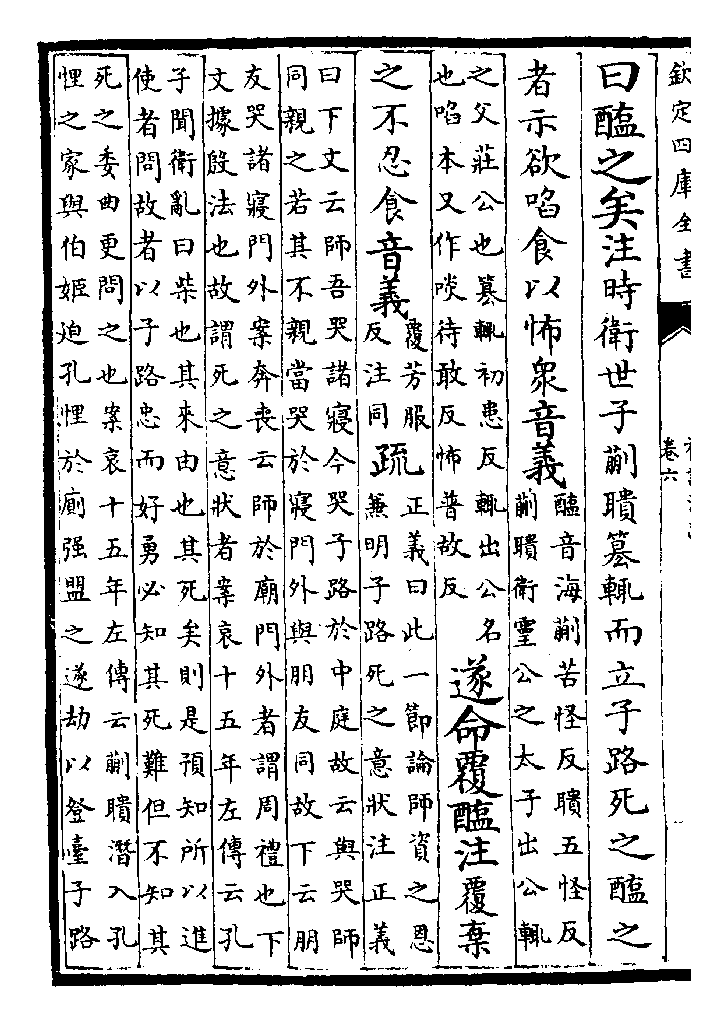 欽定四庫全書
卷六
曰醢之矣注時衛世子蒯聵簒輒而立子路死之醢之
者示欲啗食以怖衆音義
醢音海蒯苦怪反聵五怪反
蒯聵衛靈公之太子出公輒
之父莊公也簒輒初患反輒出公名
也啗本又作啖待敢反怖普故反
遂命覆醢注覆棄
之不忍食音義
覆芳服
反注同
疏
正義曰此一節論師資之恩
兼明子路死之意狀注正義
曰下文云師吾哭諸寢今哭子路於中庭故云與哭師
同親之若其不親當哭於寢門外與朋友同故下云朋
友哭諸寢門外案奔喪云師於廟門外者謂周禮也下
文據殷法也故謂死之意狀者案哀十五年左傳云孔
子聞衛亂曰柴也其來由也其死矣則是預知所以進
使者問故者以子路忠而好勇必知其死難但不知其
死之委曲更問之也案哀十五年左傳云蒯聵潛入孔
悝之家與伯姬迫孔悝於廁强盟之遂劫以登臺子路